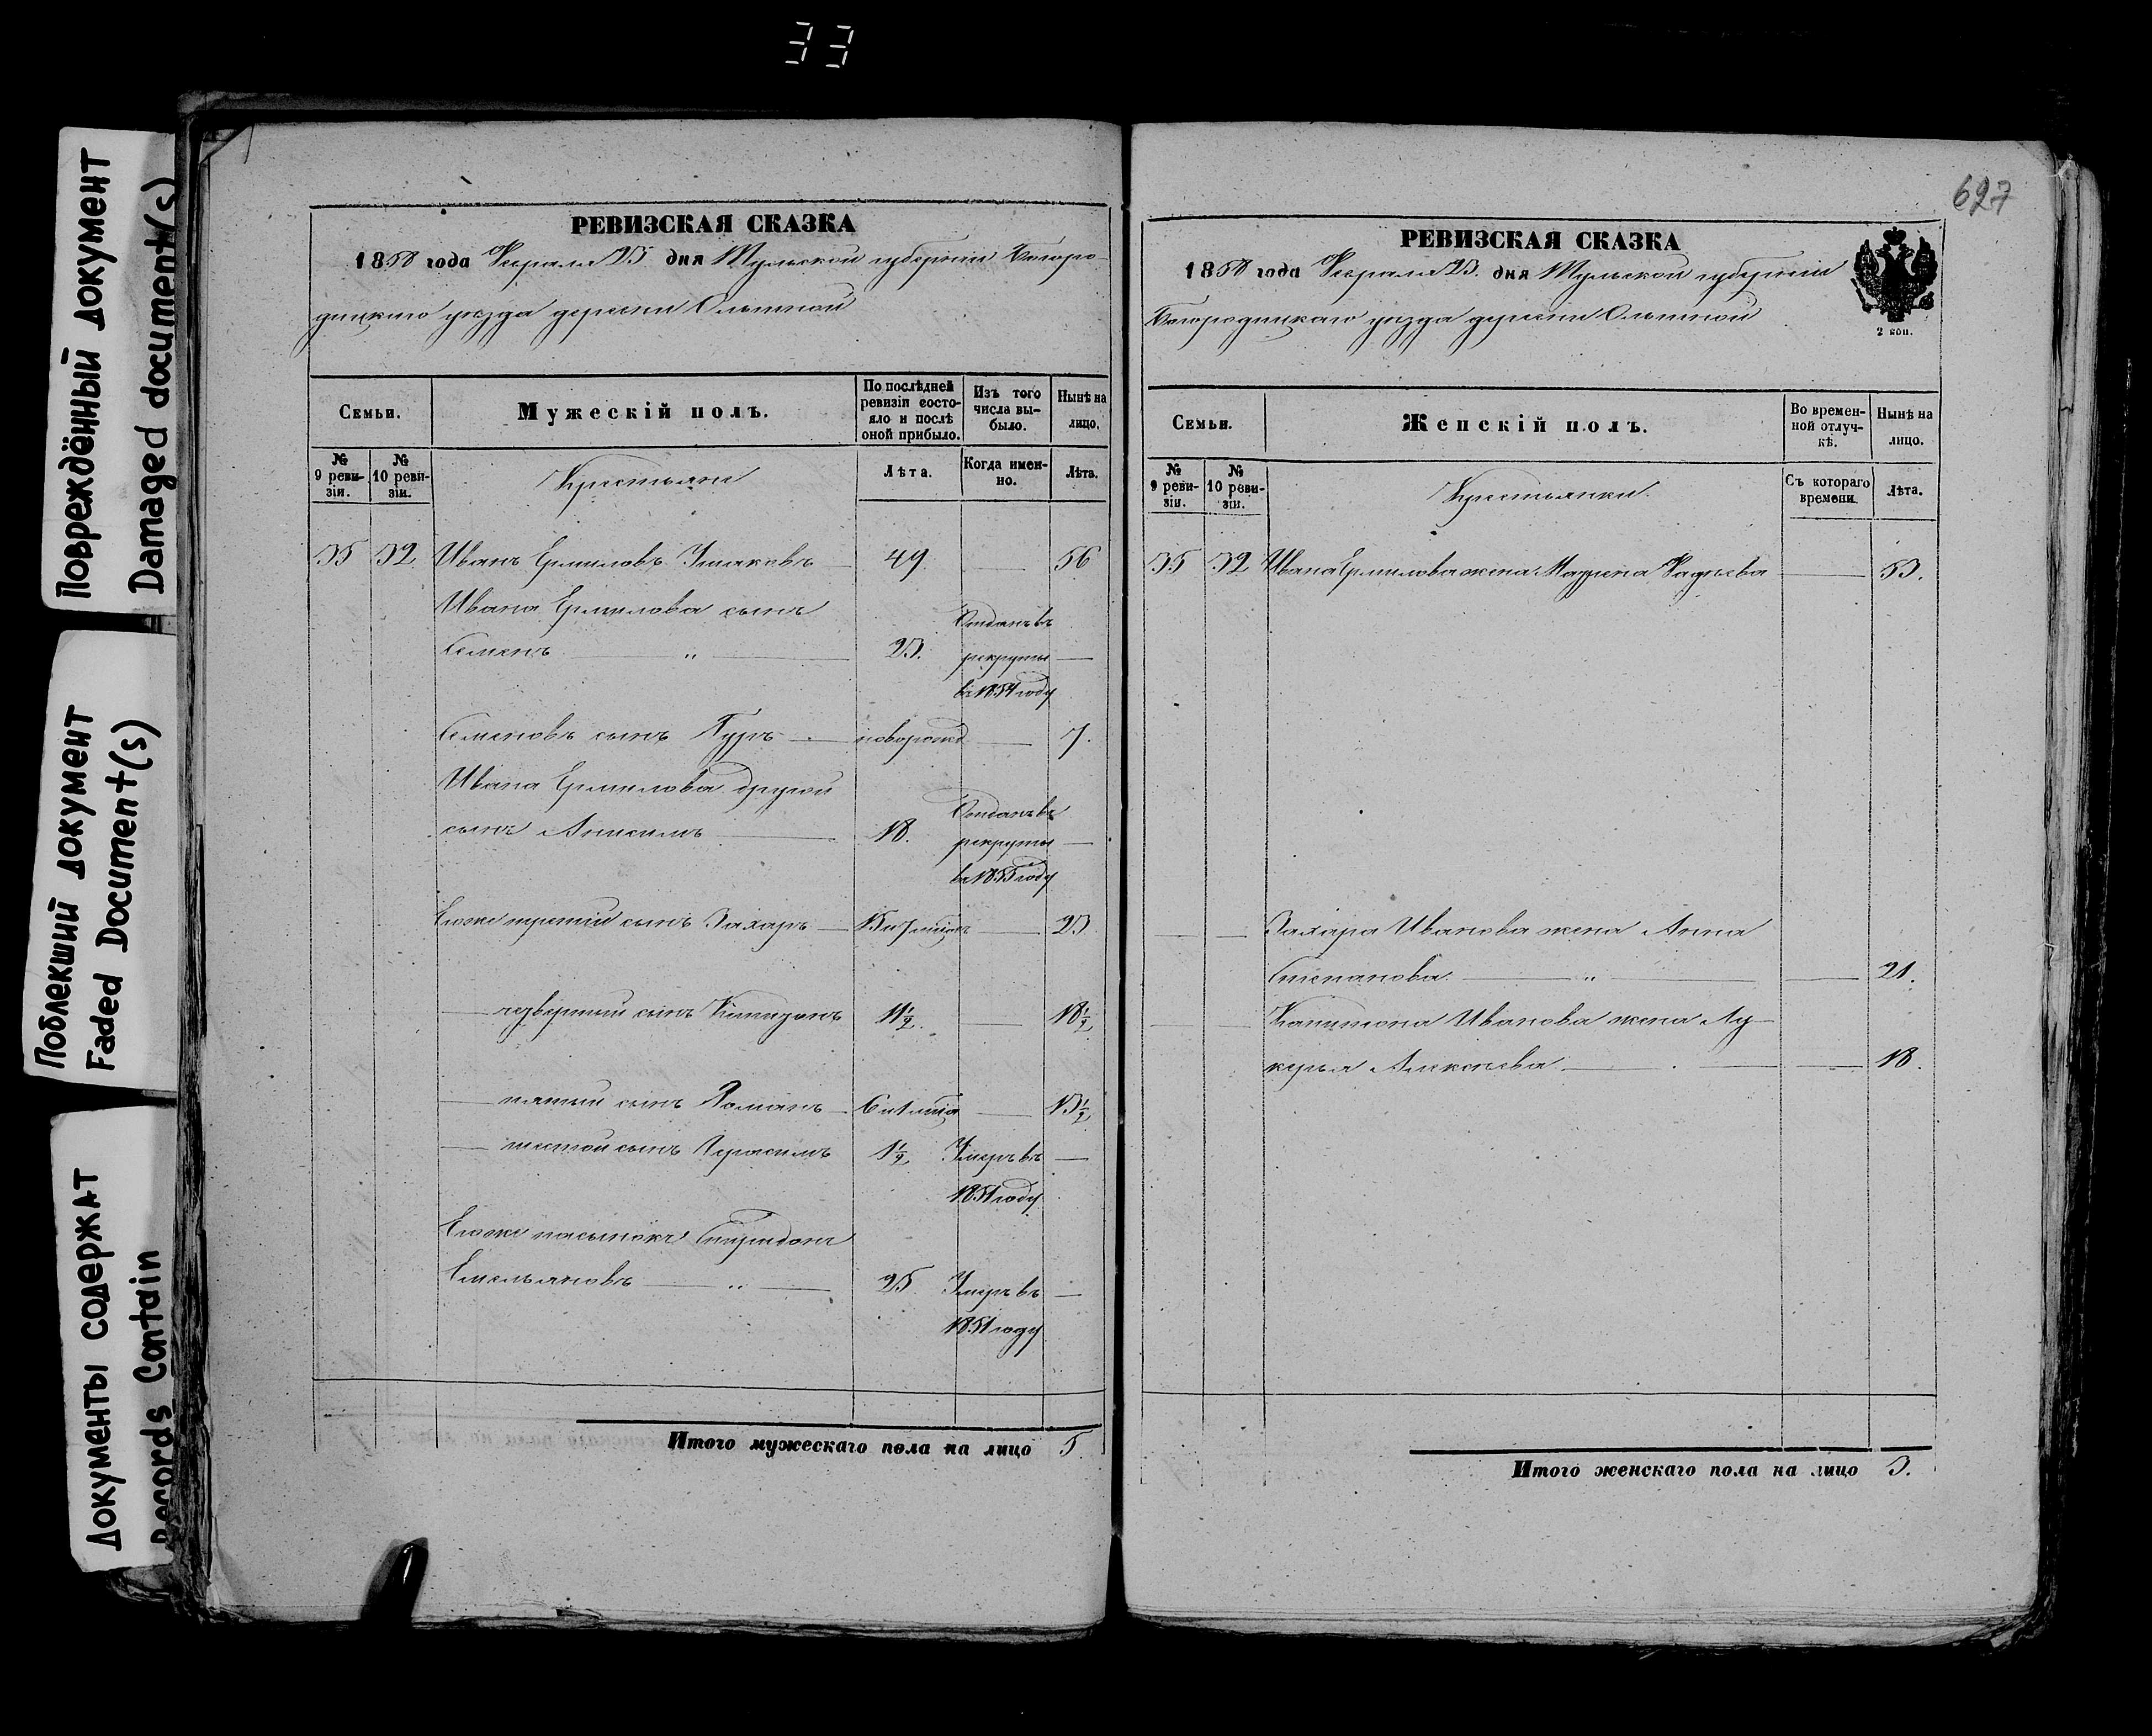 33
Повреждённый документ
Damaged document(s)
Поблекший документ
Faded Document(s)
Документы содержат
Records Contain
РЕВИЗСКАЯ СКАЗКА
1858 года Февраля 23 дня Тульской губернiи Богоро-
дицкаго уѣзда деревни Ольшной
Семьи.
Мужескiй полъ.
По послѣдней ревизiи состо-яло и послѣ оной прибыло.
Изъ того числа вы-было.
Нынѣ на лицо.
№ 9 реви-зiи.
№ 10 реви-зiи.
Крестьяне
Лѣта.
Когда имен-но.
Лѣта.
35 32 Иванъ Ермиловъ Ушаковъ 49. 56
Ивана Ермилова сынъ Отданъ въ
Семенъ " 23. рекруты
въ 1854 году
Семеновъ сынъ Гуръ новорожд 7.
Ивана Ермилова другой
Отданъ въ
сынъ Анисимъ 18. рекруты
въ 1855 году
Егоже третiй сынъ Захаръ 15 и 7 мѣсяц 23
четвертый сынъ Капитонъ 11½ 18½
пятый сынъ Романъ 6 и 1 мѣсяц 13½
шестой сынъ Герасимъ 1½ Умеръ въ
1851 году.
Егоже пасынокъ Спиридонъ
Емельяновъ " 25. Умеръ въ
1851 году
Итого мужескаго пола на лицо 5.
627
РЕВИЗСКАЯ СКАЗКА
1858 года Февраля 23. дня Тульской губернiи
Богородицкаго уѣзда деревни Ольшной
2 коп.
Семьи.
Женскiй полъ.
Во времен-ной отлуч-кѣ.
Нынѣ на лицо.
№ 9 реви-зiи.
№ 10 реви-зiи.
Крестьянки.
Съ котораго времени.
Лѣта.
35 32 Ивана Ермилова жена Марина Фадѣева 53.
Захара Иванова жена Анна
Степанова. " 21.
Капитона Иванова жена Лу-
керья Алексѣева. 18.
Итого женскаго пола на лицо 3.